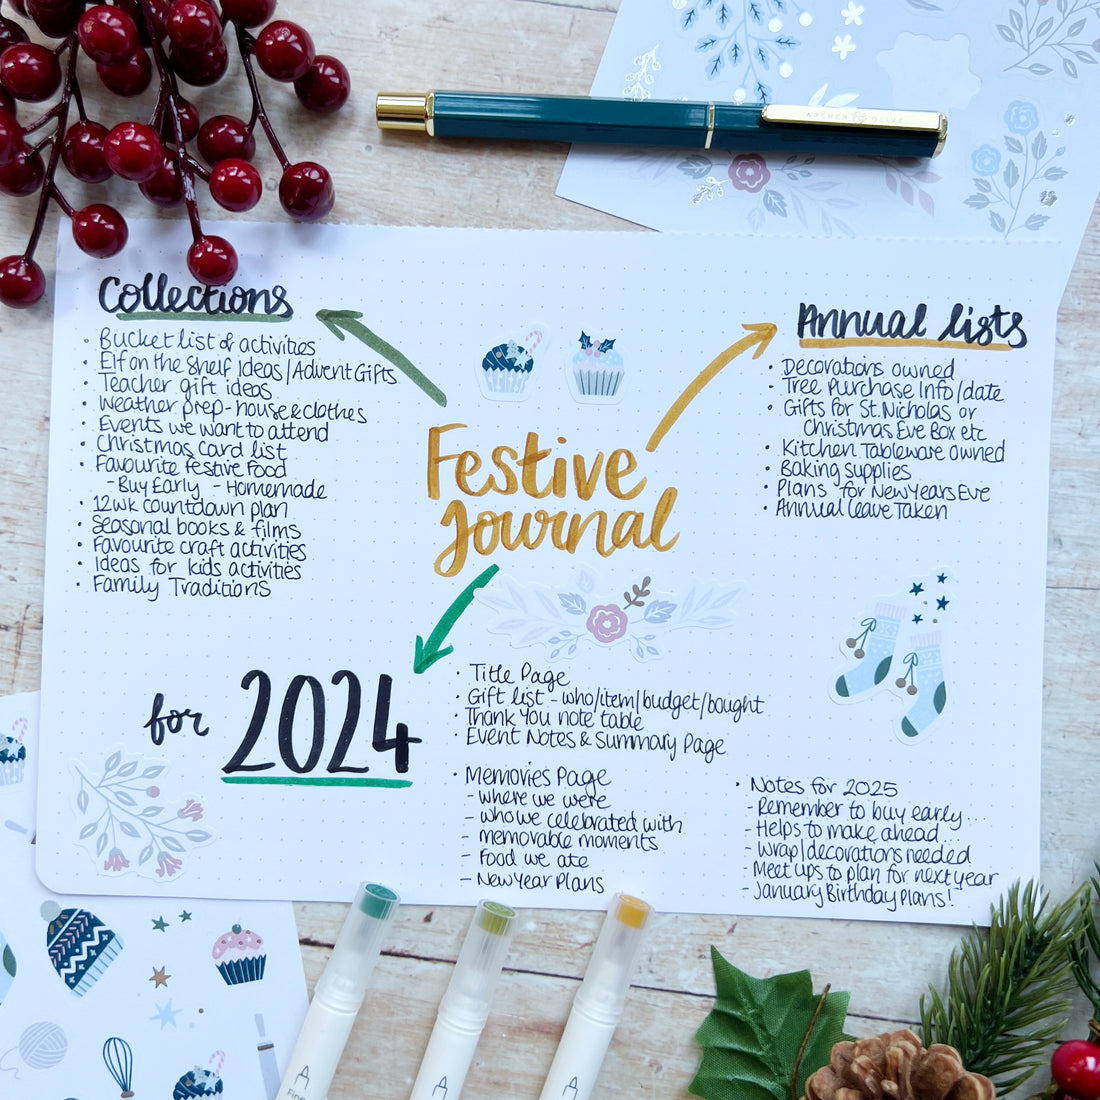 ARCHER & OLIVE
Collections
Bucket list of activities
Elf on the Shelf ideas/Advent Gifts
Teacher gift ideas
Weather prep - house & clothes
Events we want to attend
Christmas card list
Favourite festive food
- Buy Early - Homemade
12wk countdown plan
Seasonal books & films
Favourite craft activities
Ideas for kids activities
Family Traditions
Annual lists
Decorations owned
Tree Purchase Info/date
Gifts for St. Nicholas or
Christmas Eve Box etc
Kitchen Tableware owned
Baking supplies
Plans for New Years Eve
Annual leave Taken
Festive
Journal
for 2024
Title Page
Gift list - who/item/budget/bought
Thank You note table
Event Notes & Summary Page
Memories Page
- where we were
- who we celebrated with
- memorable moments
- Food we ate
- New Year Plans
Notes for 2025
- Remember to buy early...
- Helps to make ahead...
- Wrap/decorations needed
- Meet ups to plan for next year
- January Birthday Plans!